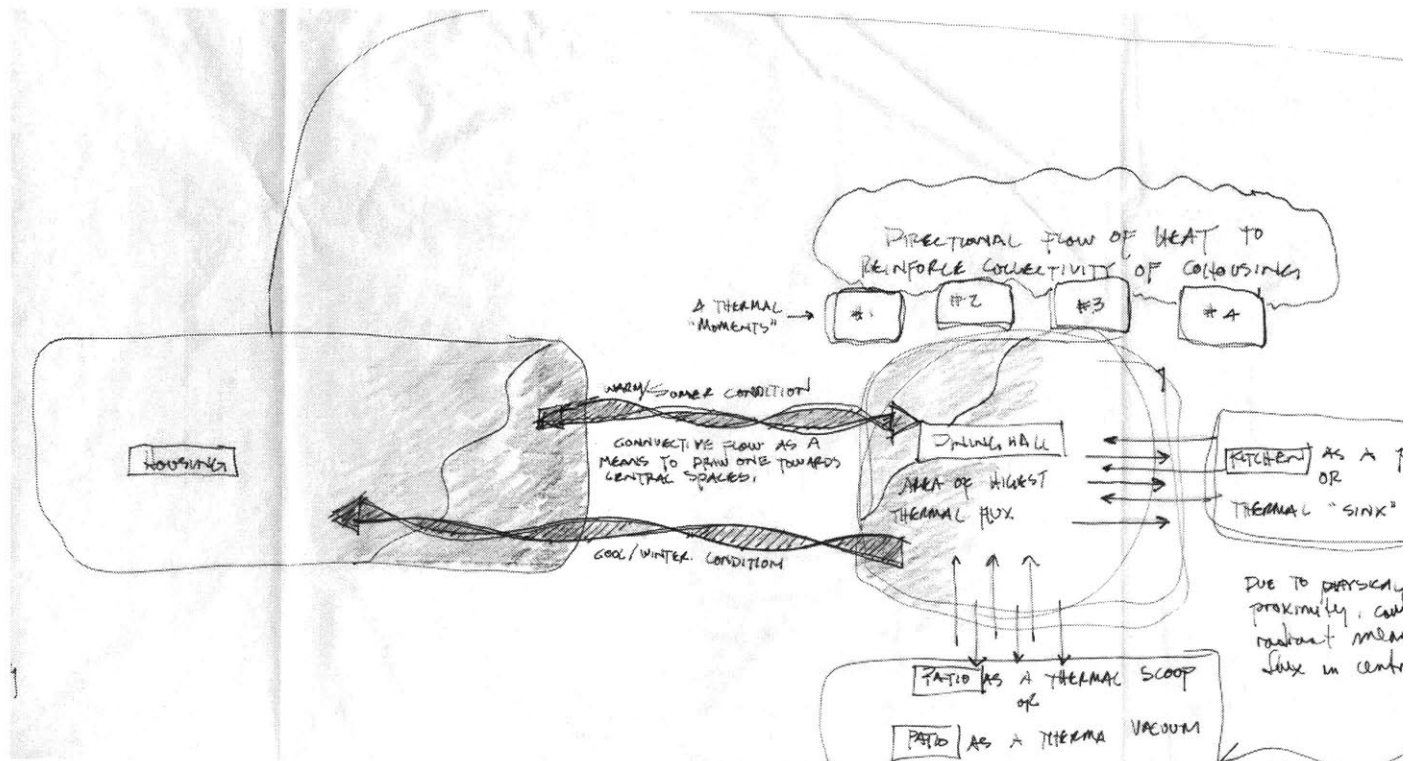 DIRECTIONAL FLOW OF HEAT TO
REINFORCE COLLECTIVITY OF COHOUSING
4 THERMAL
"MOMENTS"
#1
#2
#3
#4
WARM/SUMER CONDITION
CONVECTIVE FLOW AS A
MEANS TO DRAW ONE TOWARDS
CENTRAL SPACES.
HOUSING
COOL/WINTER CONDITION
DINING HALL
AREA OF HIGEST
THERMAL FLUX
KITCHEN AS A
OR
THERMAL "SINK"
DUE TO PHYSICAL
proximity,
radiant
flux in
PATIO AS A THERMAL SCOOP
OR
PATIO AS A THERMA VACUUM